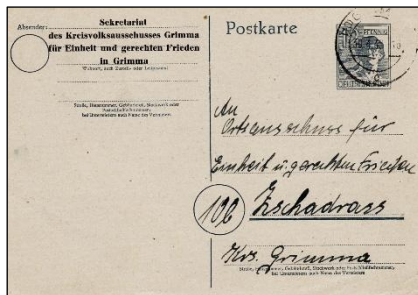 Absender:
Sekretariat
des Kreisvolksausschusses Grimma
für Einheit und gerechten Frieden
in Grimma
Wohnort, auch Zustell- oder Leitpostamt
Straße, Hausnummer, Gebäudeteil, Stockwerk oder
Postschließfachnummer,
bei Untermietern auch Name des Vermieters
Postkarte
PFENNIG
An
Ortsausschuss für
Einheit u. gerechten Frieden
10b
Zschadrass
Krs. Grimma
Straße, Hausnummer, Gebäudeteil, Stockwerk oder Postschließfachnummer,
bei Untermietern auch Name des Vermieters